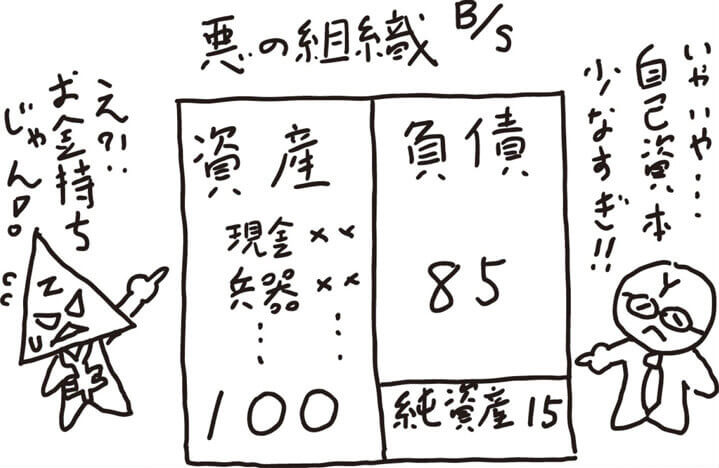 悪の組織 B/S
え?!
お金持ち
じゃん!!
資産
現金 ××
兵器 ××
︙ ︙
100
負債
85
純資産 15
いやいや…
自己資本
少なすぎ!!